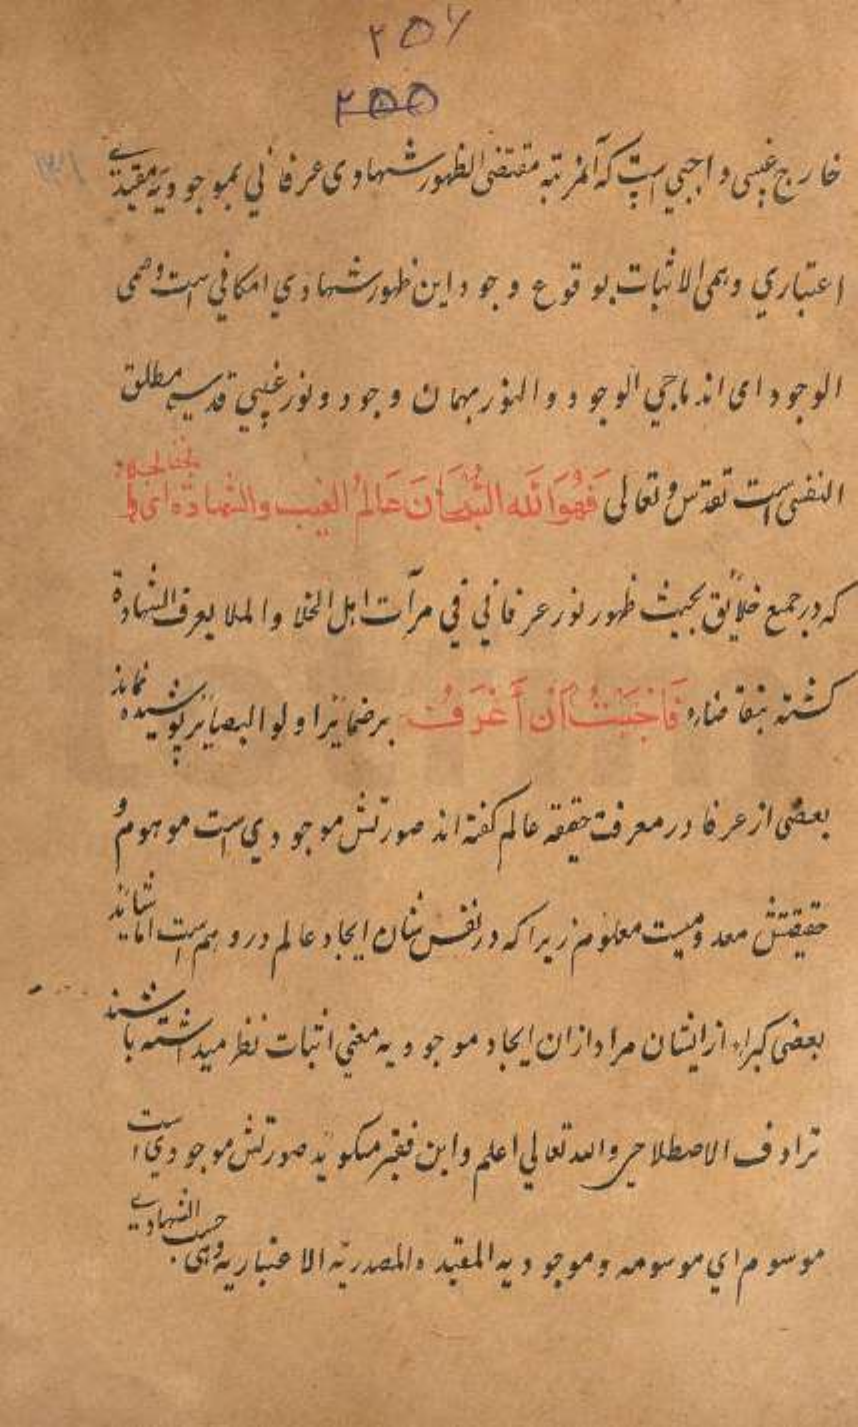 ۲۵۶
۲۵۵
خارج غیبی و اجبی است که آنمرتبه مقتضی الظهور شهادی عرفانی بموجودیة مقیدے
اعتباری وهمی الاثبات بوقوع وجود این ظهور شهادي امکانی است وهمی
الوجود ای اندماجی الوجود و النور بهمان وجود و نور غیبي قدسی مطلق
النفسی است تقدس و تعالی فَهُوَ الله السُّبْحَانَ عَالِمُ الغیب والشهادة ای
که در جمیع خلایق بحیث ظهور نور عرفانی فی مرآت اهل الخلا والملا یعرف الشهادة
کشته بتقاضاء فَاَحْبَبْتُ اَنْ اُعْرَفْ بر ضمایر اولو البصایر پوشیده نماند
بعضی از عرفا در معرفت حقیقه عالم کفته اند صورتش موجودي است موهوم و
حقیقتش معدومیست معلوم زیرا که در نفس شان ایجاد عالم در وهم است اما شاید
بعضی کبراء از ایشان مراد ازان ایجاد موجودیه معنی اثبات نظر میداشته باشند
ترادف الاصطلاحی والله تعالی اعلم و این فقیر میکوید صورتش موجودي است
موسوم اي موسومه و موجودیه المقیده والمصدریّه الاعتباریه وهی حسب الشهادیے